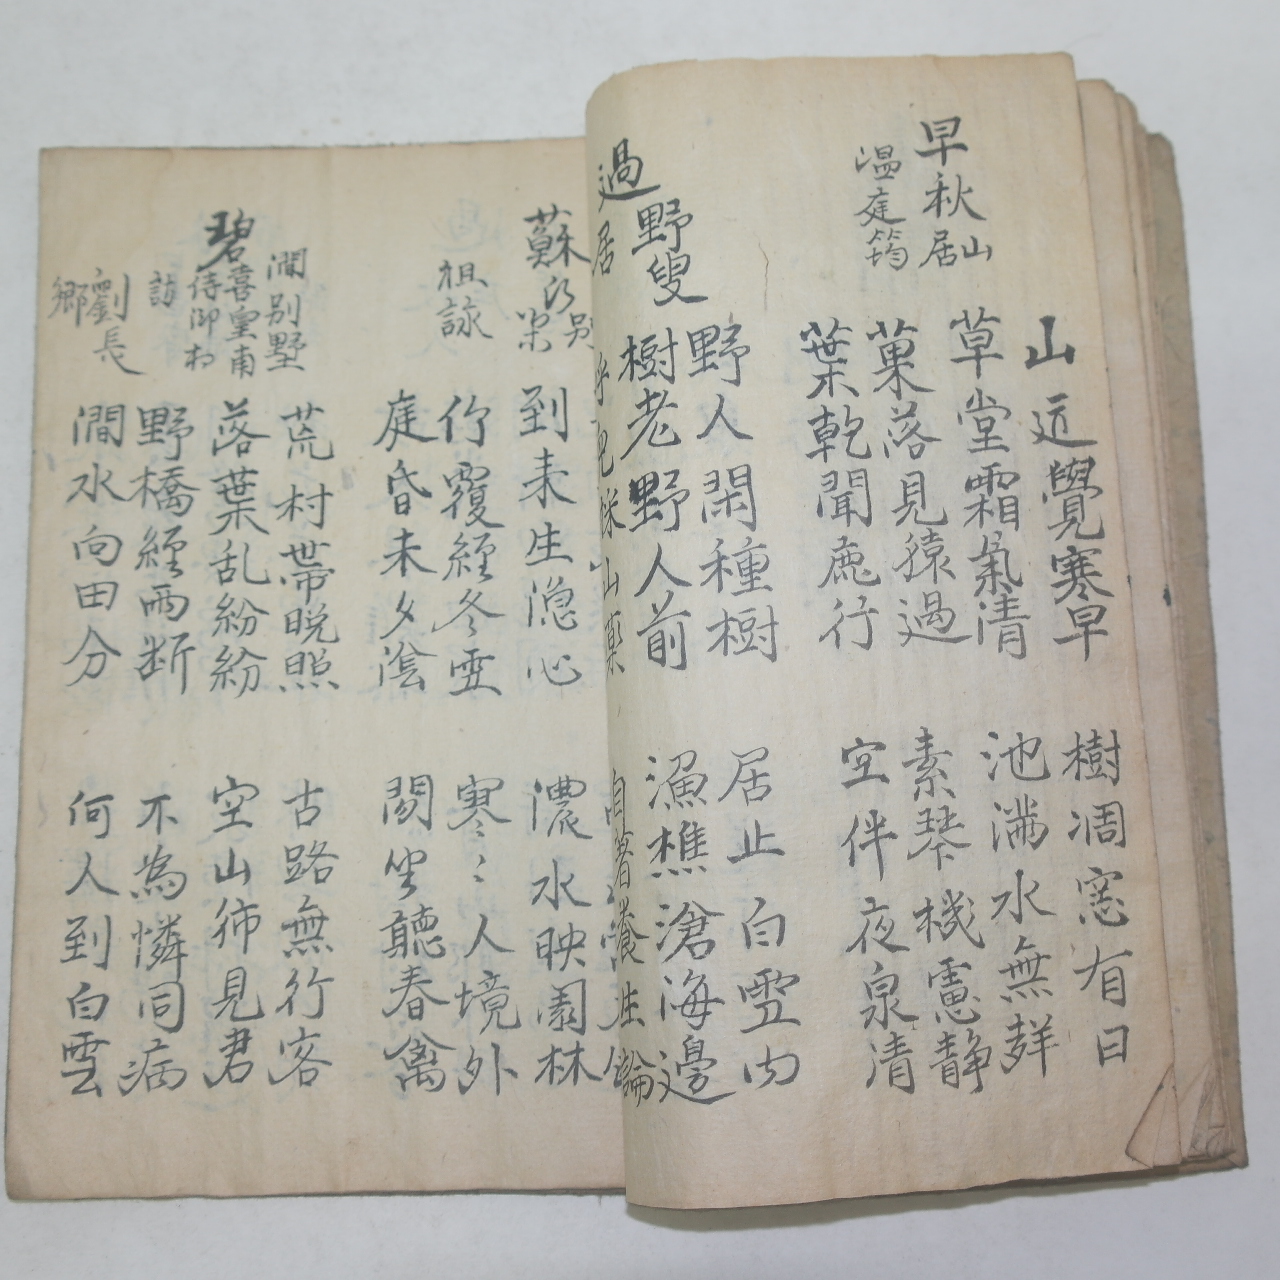 早秋山居
温庭筠
山近覺寒早 樹凋窓有日
草堂霜氣清 池満水無群
菓落見猿過 素琴機慮静
葉乾聞鹿行 空伴夜泉清
過野叟居
野人閑種樹 居止白雲内
樹老野人前 漁樵滄海邊
呼児採山藥
自著養生論
蘇氏別
祖詠
到来生隠心 濃水映園林
竹覆經冬雪 寒〻人境外
庭昏未夕陰 閑坐聽春禽
碧澗別墅
喜皇甫
侍御相
訪
劉長
卿
荒村帯晩照 古路無行客
落葉乱紛紛 空山獨見君
野橋經雨断 不為憐同病
澗水向田分 何人到白雲